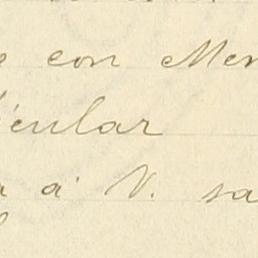 con Mer
icular
a á V. sa